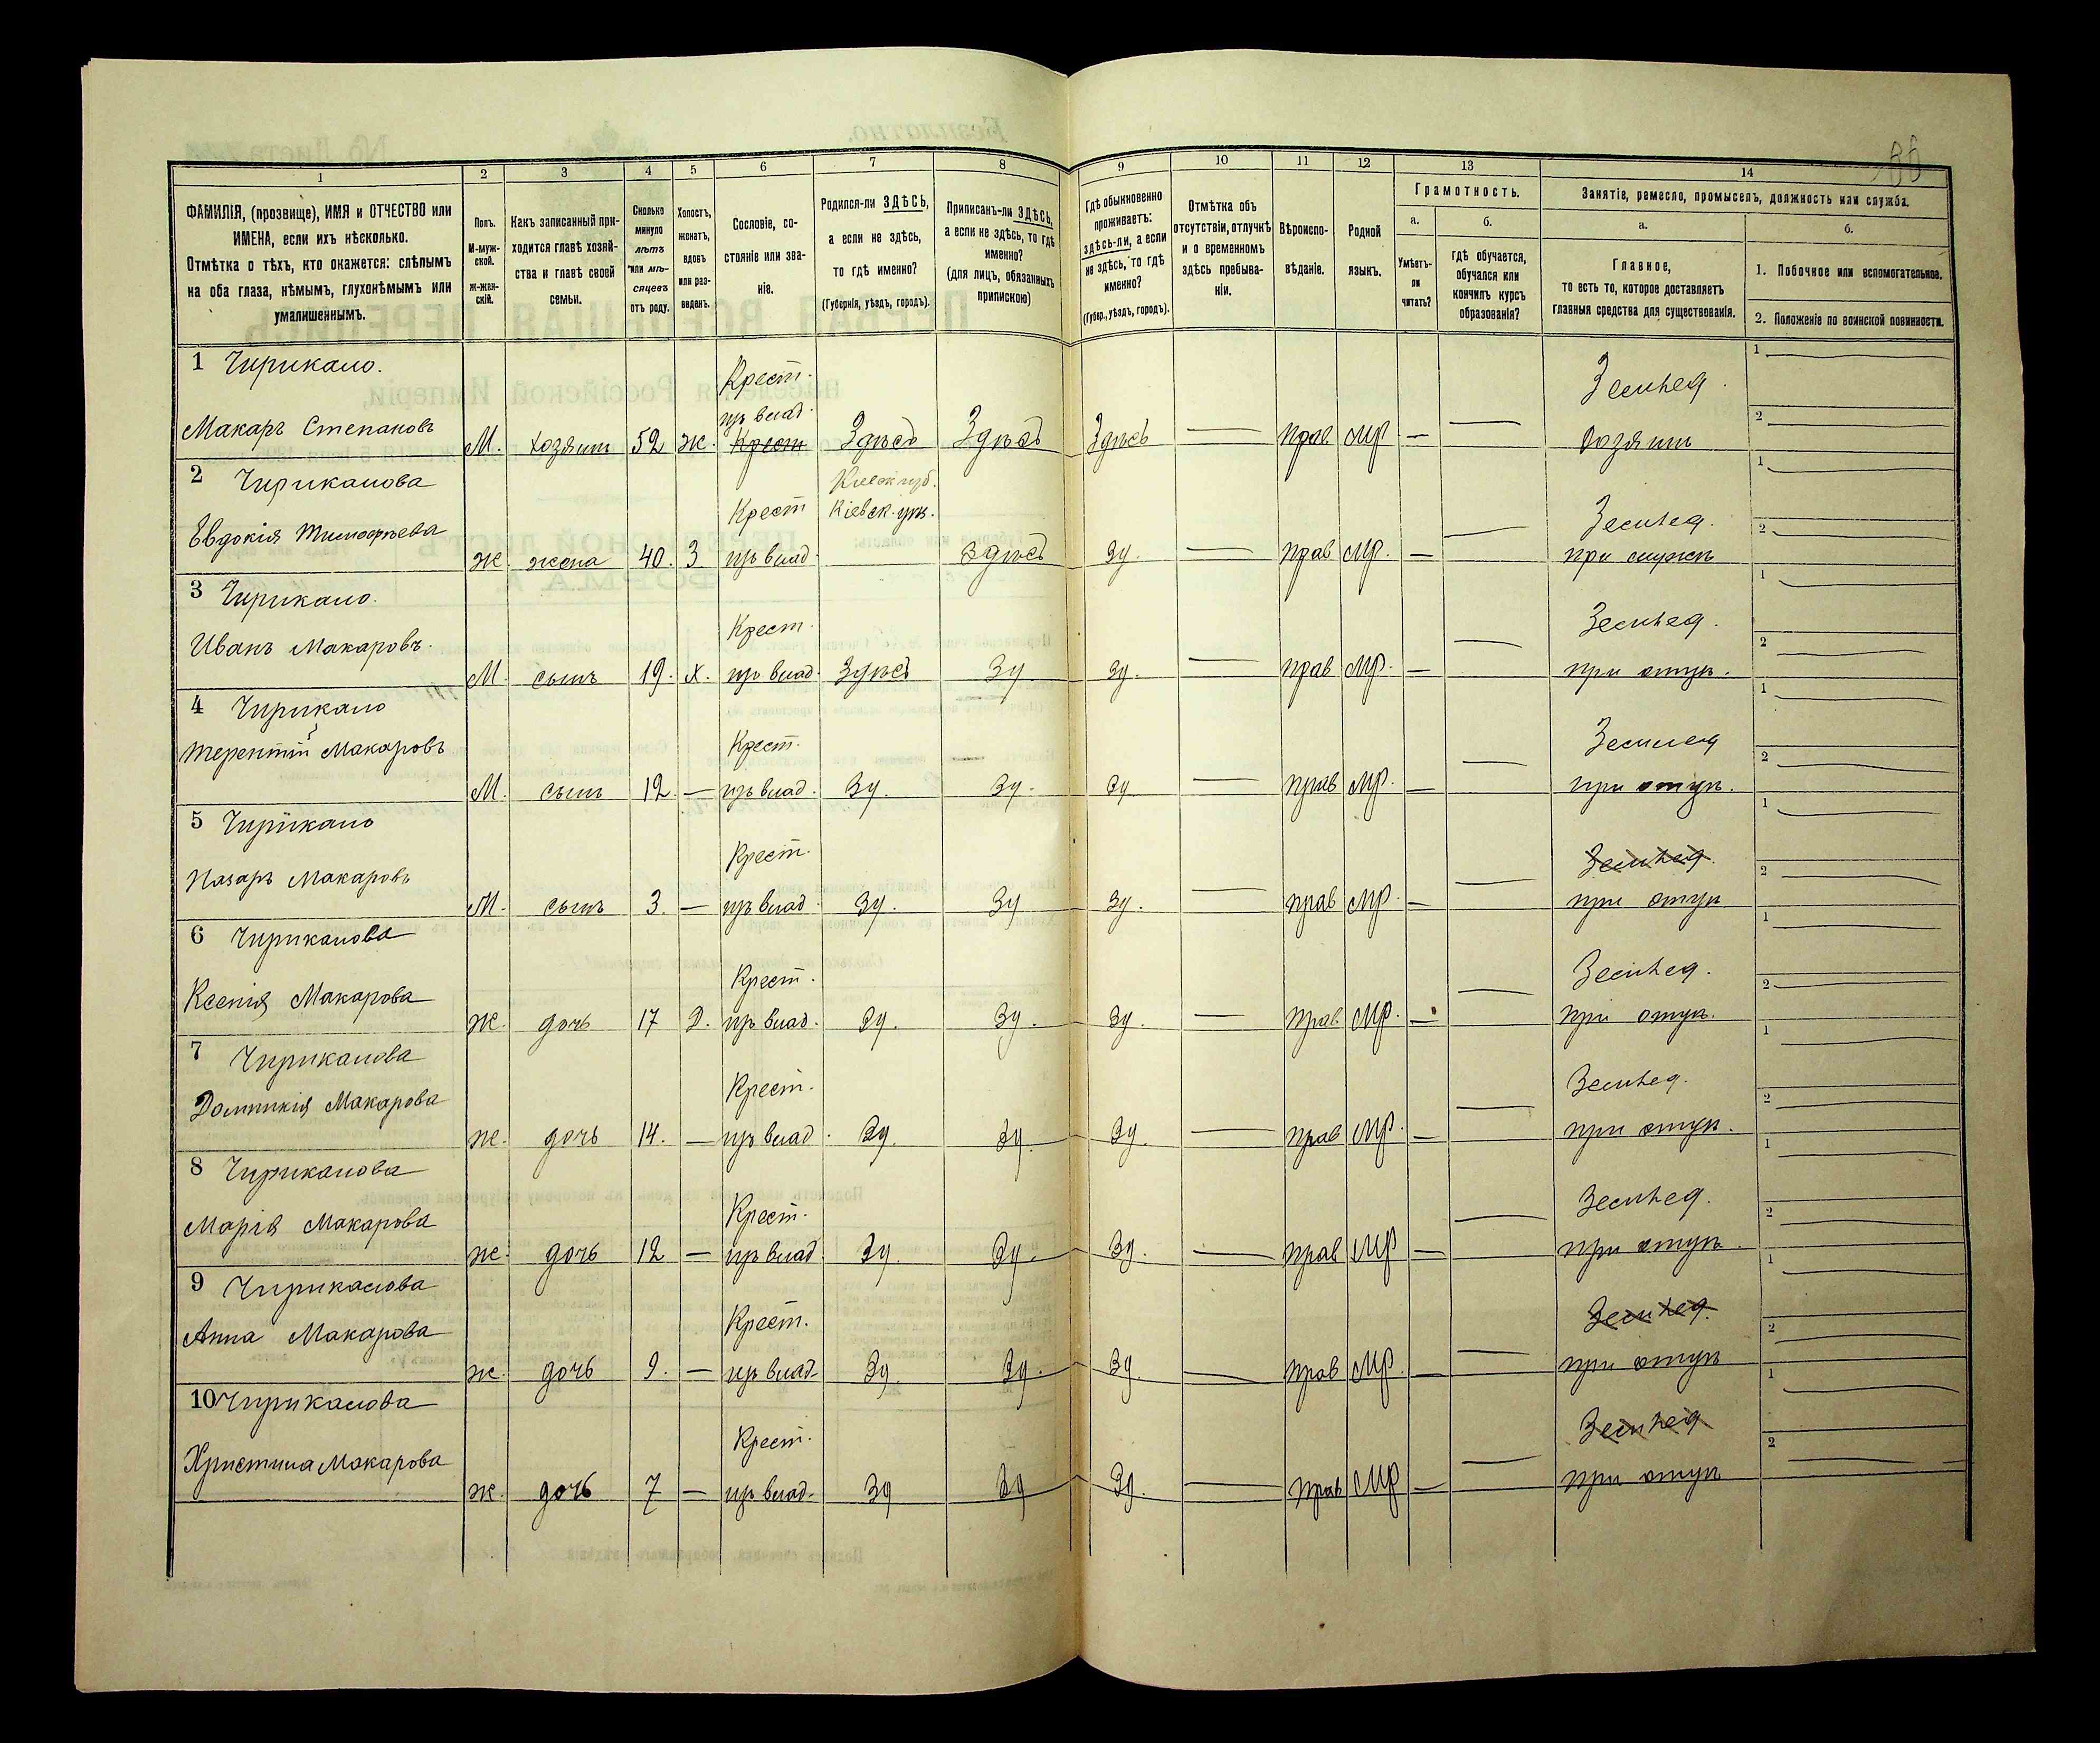 1 2 3 4 5 6 7 8 9 10 11 12 13 14
ФАМИЛІЯ, (прозвище), ИМЯ и ОТЧЕСТВО или ИМЕНА, если ихъ нѣсколько.
Отмѣтка о тѣхъ, кто окажется: слѣпымъ на оба глаза, нѣмымъ, глухонѣмымъ или умалишеннымъ.
Полъ. М-мужской. Ж-женскій.
Какъ записанный приходится главѣ хозяйства и главѣ своей семьи.
Сколько минуло лѣтъ или мѣсяцевъ отъ роду.
Холостъ, женатъ, вдовъ или разведенъ.
Сословіе, состояніе или званіе.
Родился-ли ЗДѢСЬ, а если не здѣсь, то гдѣ именно?
(Губернія, уѣздъ, городъ).
Приписанъ-ли ЗДѢСЬ, а если не здѣсь, то гдѣ именно?
(для лицъ, обязанныхъ припискою)
Гдѣ обыкновенно проживаетъ: здѣсь-ли, а если не здѣсь, то гдѣ именно?
(Губер., уѣздъ, городъ).
Отмѣтка объ отсутствіи, отлучкѣ и о временномъ здѣсь пребываніи.
Вѣроисповѣданіе.
Родной языкъ.
Грамотность.
а. Умѣетъ-ли читать?
б. гдѣ обучается, обучался или кончилъ курсъ образованія?
Занятіе, ремесло, промыселъ, должность или служба.
а. Главное, то есть то, которое доставляетъ главныя средства для существованія.
б.
1. Побочное или вспомогательное.
2. Положеніе по воинской повинности.
1 Чирикало. Крест. Землед. 1
пр влад. 2
Макаръ Степановъ М. хозяин 52 ж. Крест Здѣсь Здѣсь Здѣсь — прав мр — — хозяин
2 Чирикалова Кіевск губ. 1
Крест Кіевск. у. Землед. 2
Евдокія Тимофѣева ж. жена 40. З. пр влад. Здѣсь Зд. — прав мр. — — при мужѣ
3 Чирикало. Крест. Землед. 1
Иванъ Макаровъ. М. сынъ 19. х. пр влад. Здѣсь Зд. Зд. — прав мр. — — при отцѣ. 2
4 Чирикало Крест. Землед 1
Терентій Макаровъ М. сынъ 12. — пр влад. Зд. Зд. Зд — прав мр. — — при отцѣ. 2
5 Чирикало Крест. Землед. 1
Назаръ Макаровъ М. сынъ 3. — пр влад. Зд. Зд Зд. — прав мр. — — при отцѣ 2
6 Чирикалова Крест. Землед. 1
Ксенія Макарова ж. дочь 17 Д. пр влад. Зд. Зд. Зд. — прав мр. — — при отцѣ. 2
7 Чирикалова Крест. Землед. 1
Домникія Макарова ж. дочь 14. — пр влад. Зд. Зд. Зд. — прав мр. — — при отцѣ. 2
8 Чирикалова Крест. Землед. 1
Марія Макарова ж. дочь 12 — пр влад. Зд. Зд. Зд. — прав мр — — при отцѣ. 2
9 Чирикалова Крест. Землед. 1
Анна Макарова ж. дочь 9. — пр влад. Зд. Зд. Зд. — прав мр. — — при отцѣ 2
10 Чирикалова Крест. Землед 1
Христина Макарова ж. дочь 7 — пр влад. Зд Зд Зд. — прав мр — — при отцѣ 2